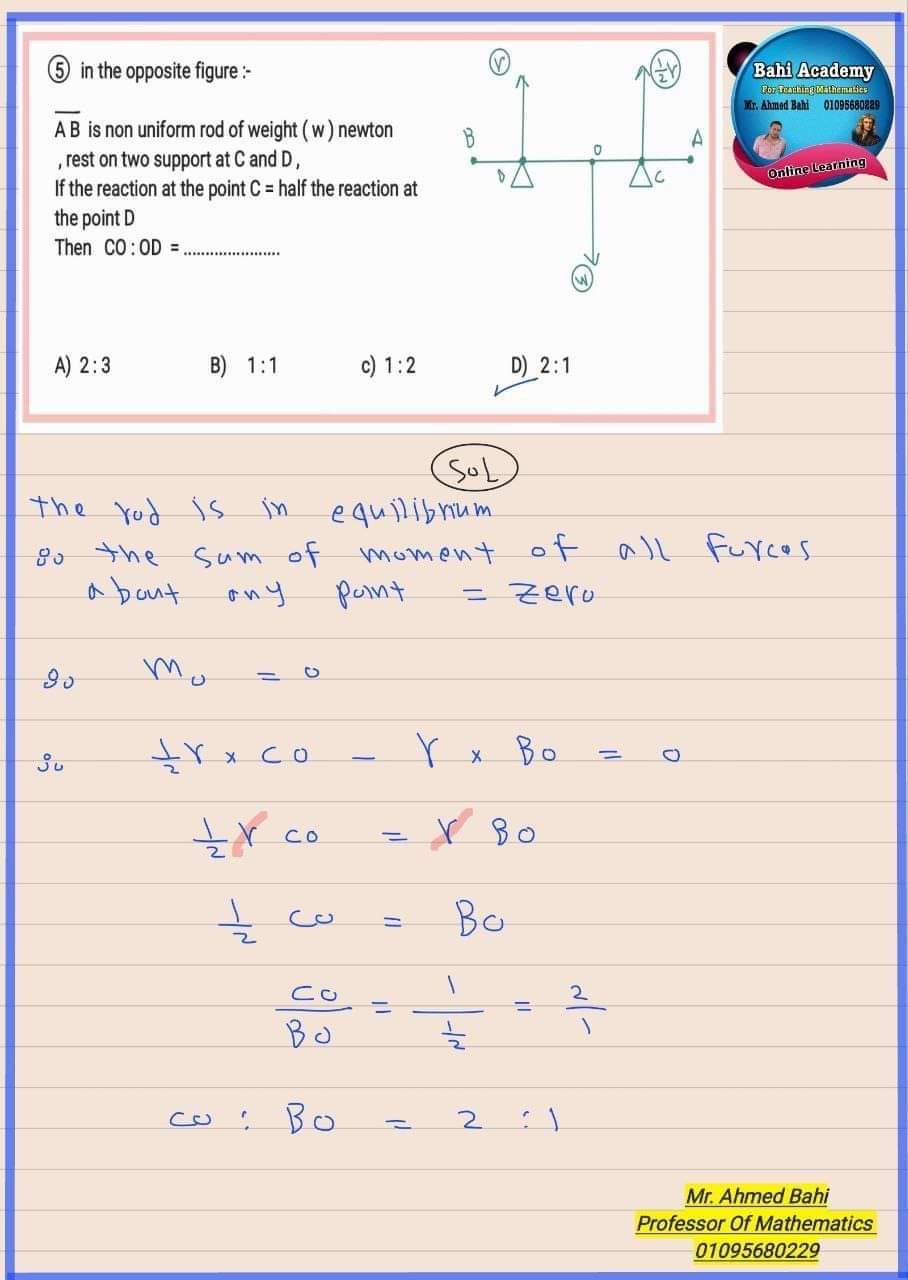 ⑤ in the opposite figure :-
A B is non uniform rod of weight ( w ) newton
, rest on two support at C and D ,
If the reaction at the point C = half the reaction at
the point D
Then CO : OD = ......................
A) 2 : 3 B) 1 : 1 c) 1 : 2 D) 2 : 1
r
1/2 r
B
D
O
C
A
w
Bahi Academy
For Teaching Mathematics
Mr. Ahmed Bahi 01095680229
Online Learning
SOL
the rod is in equilibrium
so the sum of moment of all forces
about any point = zero
so Mo = 0
so 1/2 r × CO - r × BO = 0
1/2 r CO = r BO
1/2 CO = BO
CO/BO = 1/(1/2) = 2/1
CO : BO = 2 : 1
Mr. Ahmed Bahi
Professor Of Mathematics
01095680229